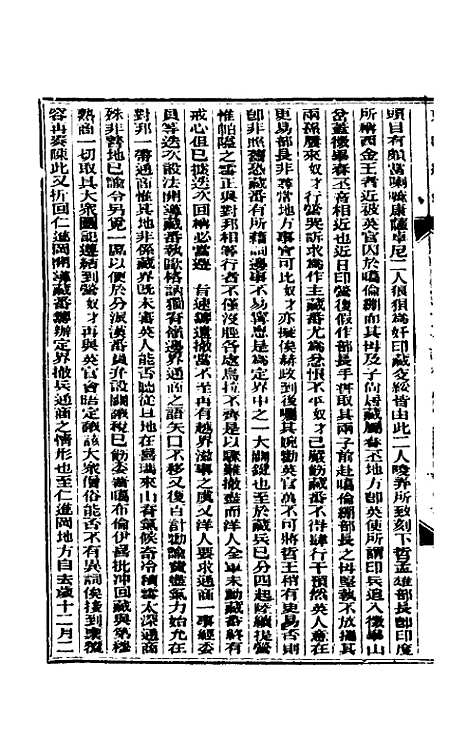 頭目有頗當喇嘛康薩卓尼二人狼狽為奸印藏交綏皆由此二人唆弄所致刻下哲孟雄部長即印度
所稱西金王者近被英官囚於噶倫綳而其母及子尚居藏屬春丕地方即英使所謂印兵追入徵畢山
岔蓋徵畢春丕音相近也近日印營復假作部長手書取其兩子前赴噶倫綳部長之母堅執不放攜其
兩孫屢來奴才行營哭訴求為作主藏番尤為忿恨不平奴才已嚴飭藏番不得肆行干預然英人意在
更易部長非尋常地方事會可比奴才亦擬俟赫政到後囑其婉勸英官萬不可將哲王稍有更易否則
即非照舊恐藏番有所藉詞邊事不易寗息是為定界中之一大關鍵也至於藏兵已分四起陸續撤回
惟帕隘之雪正與對邦相等行者不僅沒脛各處烏拉不齊是以驟難撤盡而洋人全軍未動藏番終有
戒心但已據迭次回稱必當遵 旨速籌遣撤當不至再有越界滋事之虞又洋人要求通商一事經委
員等迭次設法開導藏番執歐格訥獨脊嶺邊界通商之語矢口不移又復百計勸諭費盡氣力始允在
對邦一帶通商惟其地非係藏界既未審英人能否聽從且地在暮瑪來山脊氣候奇冷積雪太深通商
殊非善地已諭令另覓一區以便於分派漢番員弁設關議稅已飭委番噶布倫伊喜批沖回藏與第穆
熟商一切取具大眾圖記遵結到營奴才再與英官會晤定議該大眾僧俗能否不有異詞俟接到稟覆
容再奏陳此又折回仁進岡開導藏番籌辦定界撤兵通商之情形也至仁進岡地方自去歲十二月二